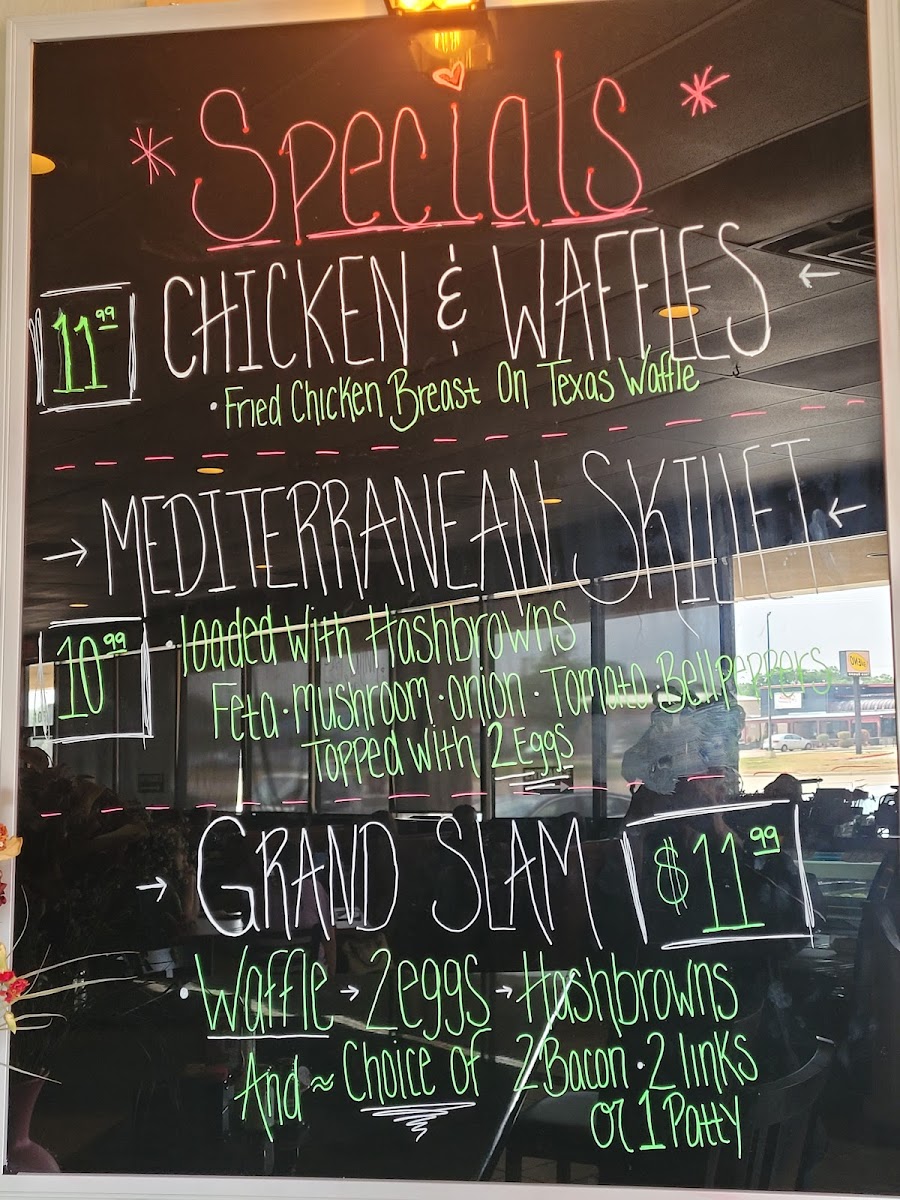 * Specials *
CHICKEN & WAFFLES ←
11.99
• Fried Chicken Breast On Texas Waffle
→ MEDITERRANEAN SKILLET ←
10.99
• loaded with Hashbrowns
Feta • Mushroom • onion • Tomato Bellpeppers
Topped with 2 Eggs
→ GRAND SLAM $11.99
• Waffle → 2 eggs → Hashbrowns
And ~ Choice of 2 Bacon • 2 links
or 1 Patty